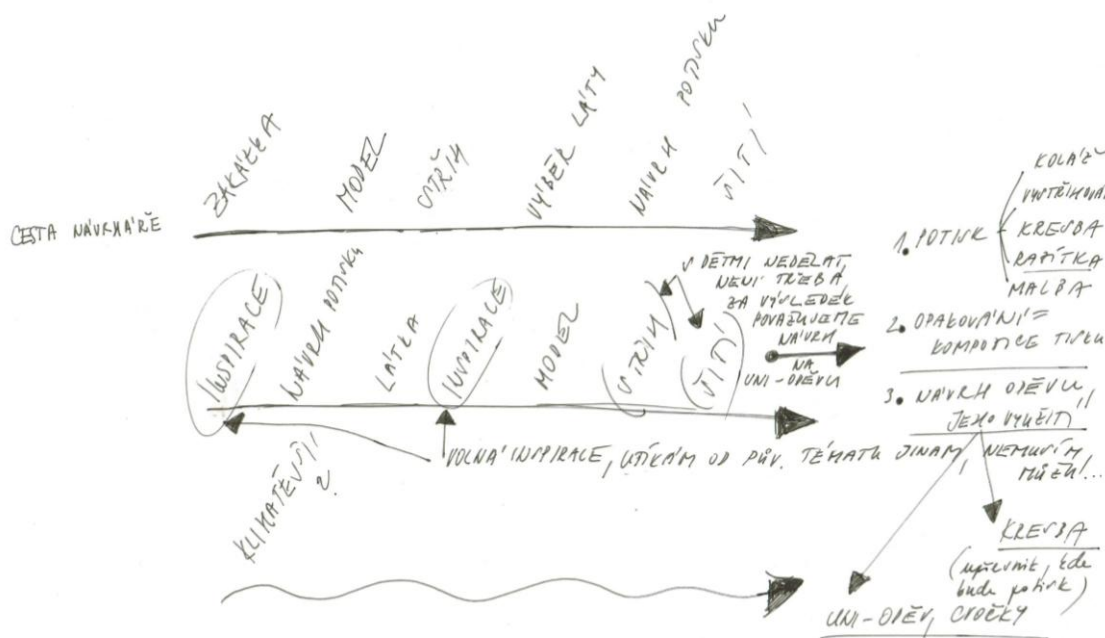 ZAKÁZKA
MODEL
STŘIH
VÝBĚR LÁTKY
NÁVRH POTISKU
ŠITÍ
CESTA NÁVRHÁŘE
INSPIRACE
NÁVRH POTISKU
LÁTKA
INSPIRACE
MODEL
STŘIH
ŠITÍ
S DĚTMI NEDĚLAT,
NENÍ TŘEBA
ZA VÝSLEDEK
POVAŽUJEME
NÁVRH
NA
UNI-ODĚVU
VOLNÁ INSPIRACE, UTÍKÁM OD PŮV. TÉMATU JINAM, NEMUSÍM,
MŮŽU!...
KLIKATĚJŠÍ
?
1. POTISK
KOLÁŽ
VYSTŘIHOVÁ
KRESBA
RAZÍTKA
MALBA
2. OPAKOVÁNÍ =
KOMPOZICE TISKU
3. NÁVRH ODĚVU,
JEHO VYUŽITÍ
KRESBA
(upřesnit, kde
bude potisk)
UNI-ODĚV, CVOČKY